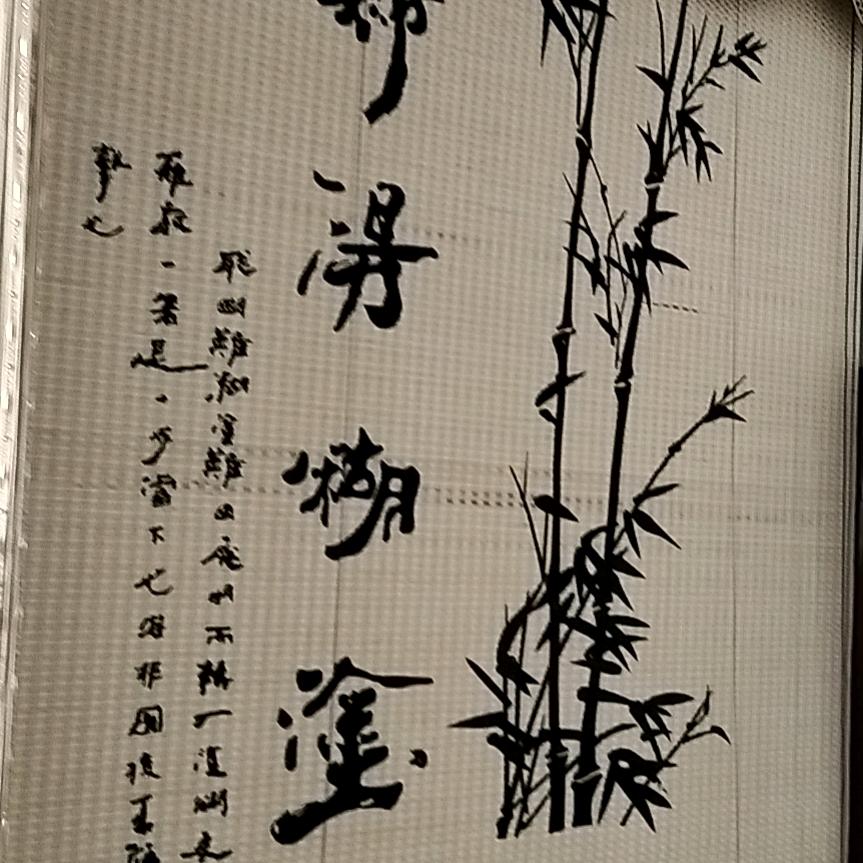 得糊塗
聰明難糊塗難由聰明而轉入糊塗更
難放一著退一步當下心安非圖後來福
報也